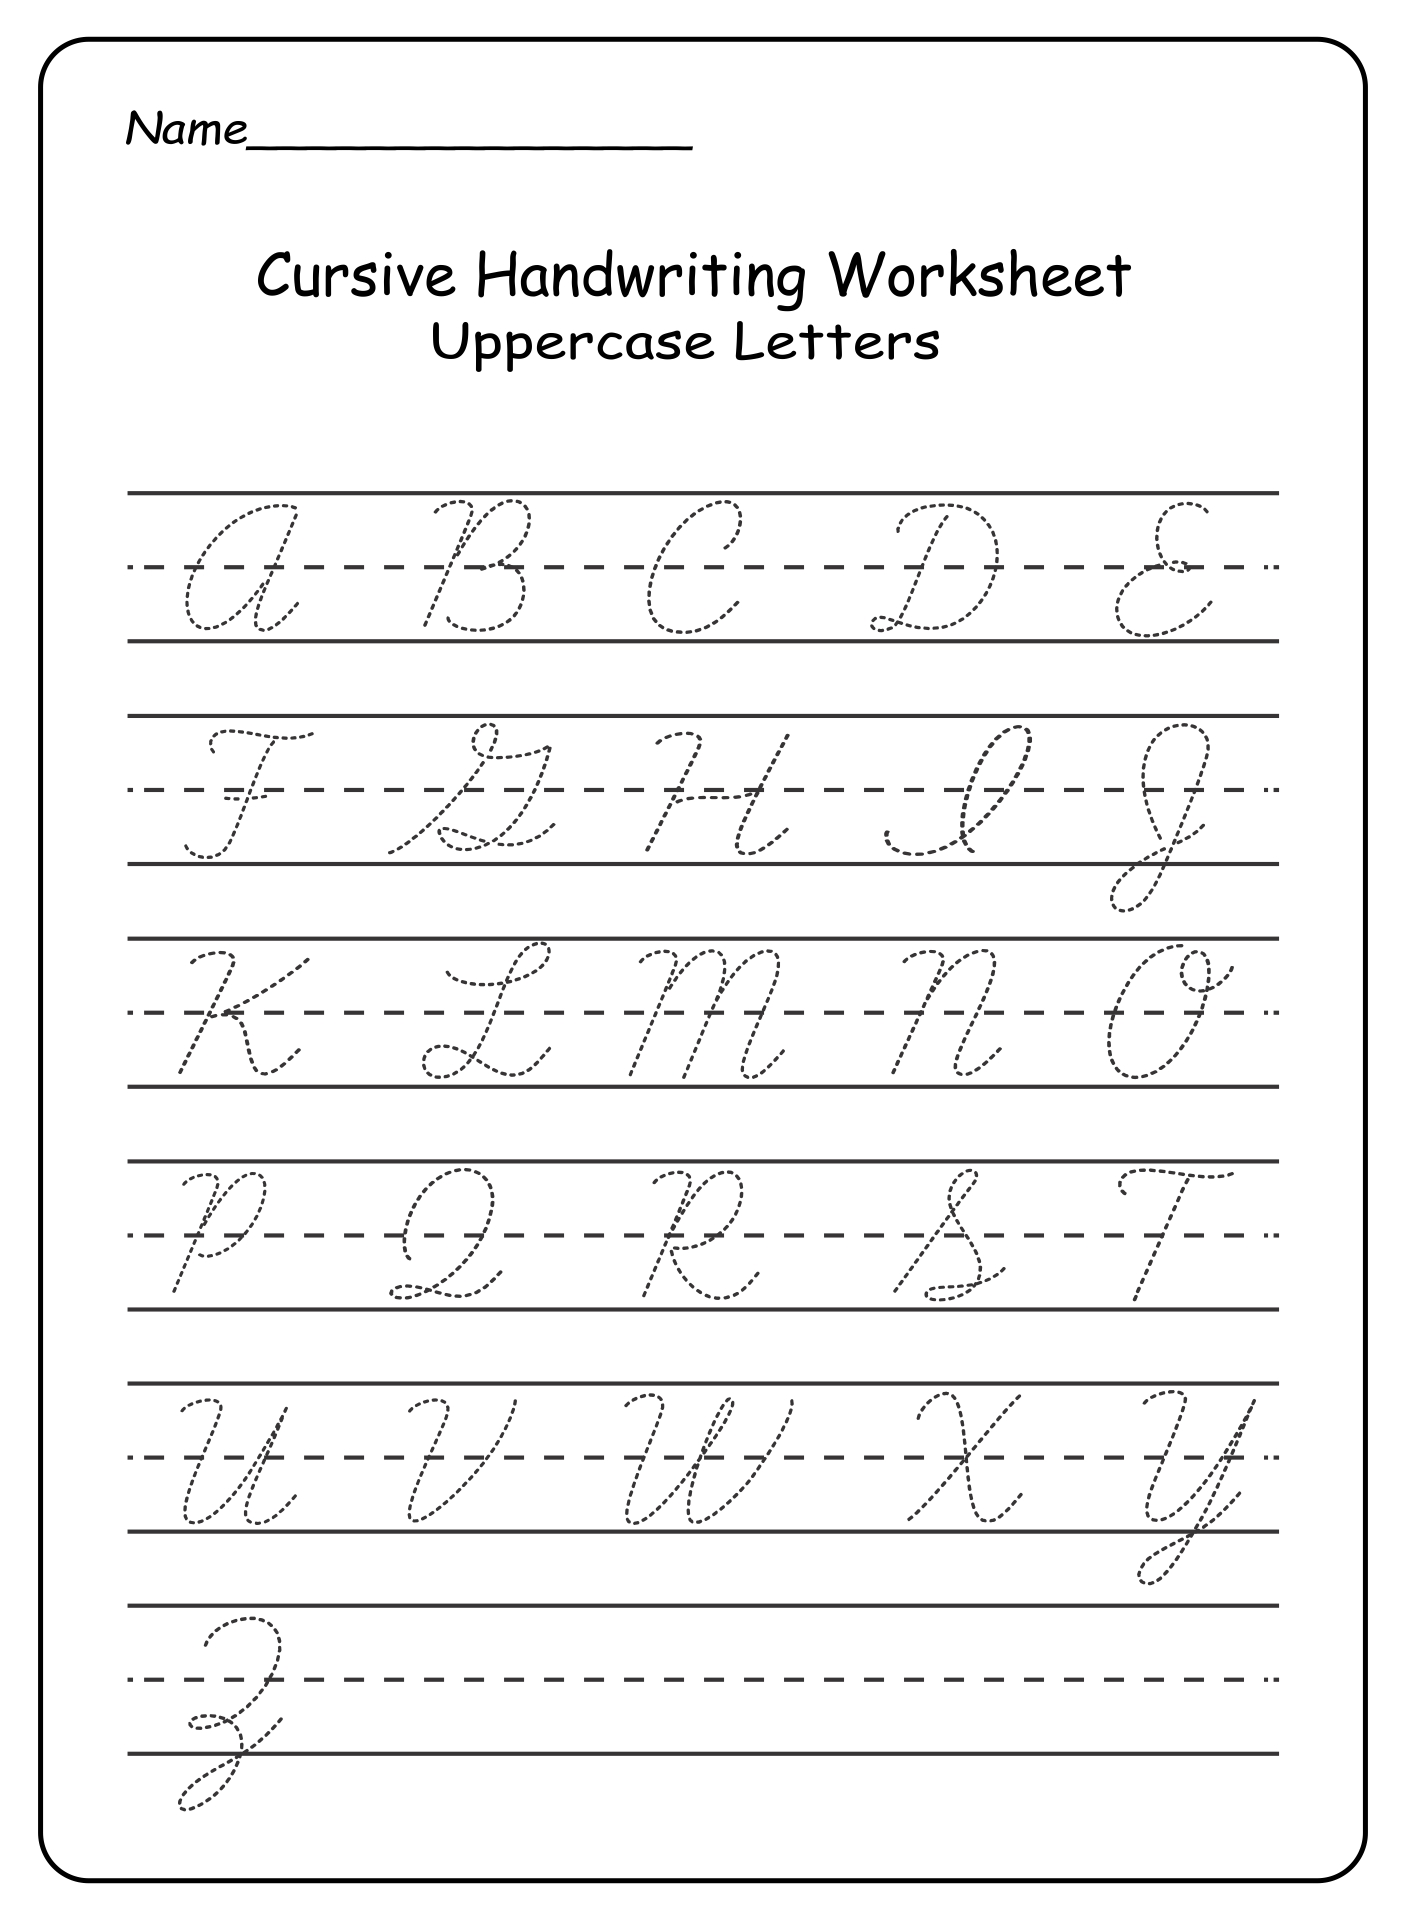 Name_________________
Cursive Handwriting Worksheet
Uppercase Letters
A B C D E
F G H I J
K L M N O
P Q R S T
U V W X Y
Z